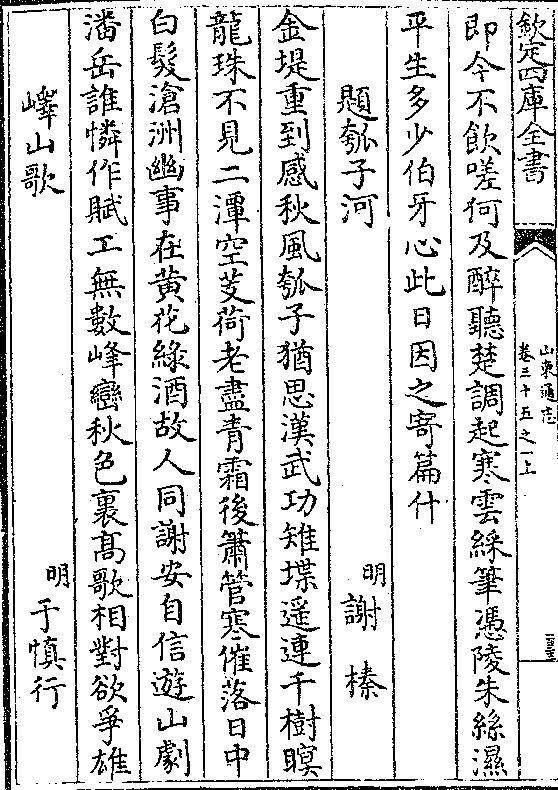 欽定四庫全書
山東通志
卷三十五之一上
即今不飲嗟何及醉聽楚調起寒雲綵筆憑陵朱絲濕
平生多少伯牙心此日因之寄篇什
題瓠子河
明 謝榛
金堤重到感秋風瓠子猶思漢武功雉堞遥連千樹暝
龍珠不見二潭空芰荷老盡青霜後簫管寒催落日中
白髮滄洲幽事在黄花綠酒故人同謝安自信遊山劇
潘岳誰憐作賦工無數峰巒秋色裏髙歌相對欲爭雄
嶧山歌
明 于慎行